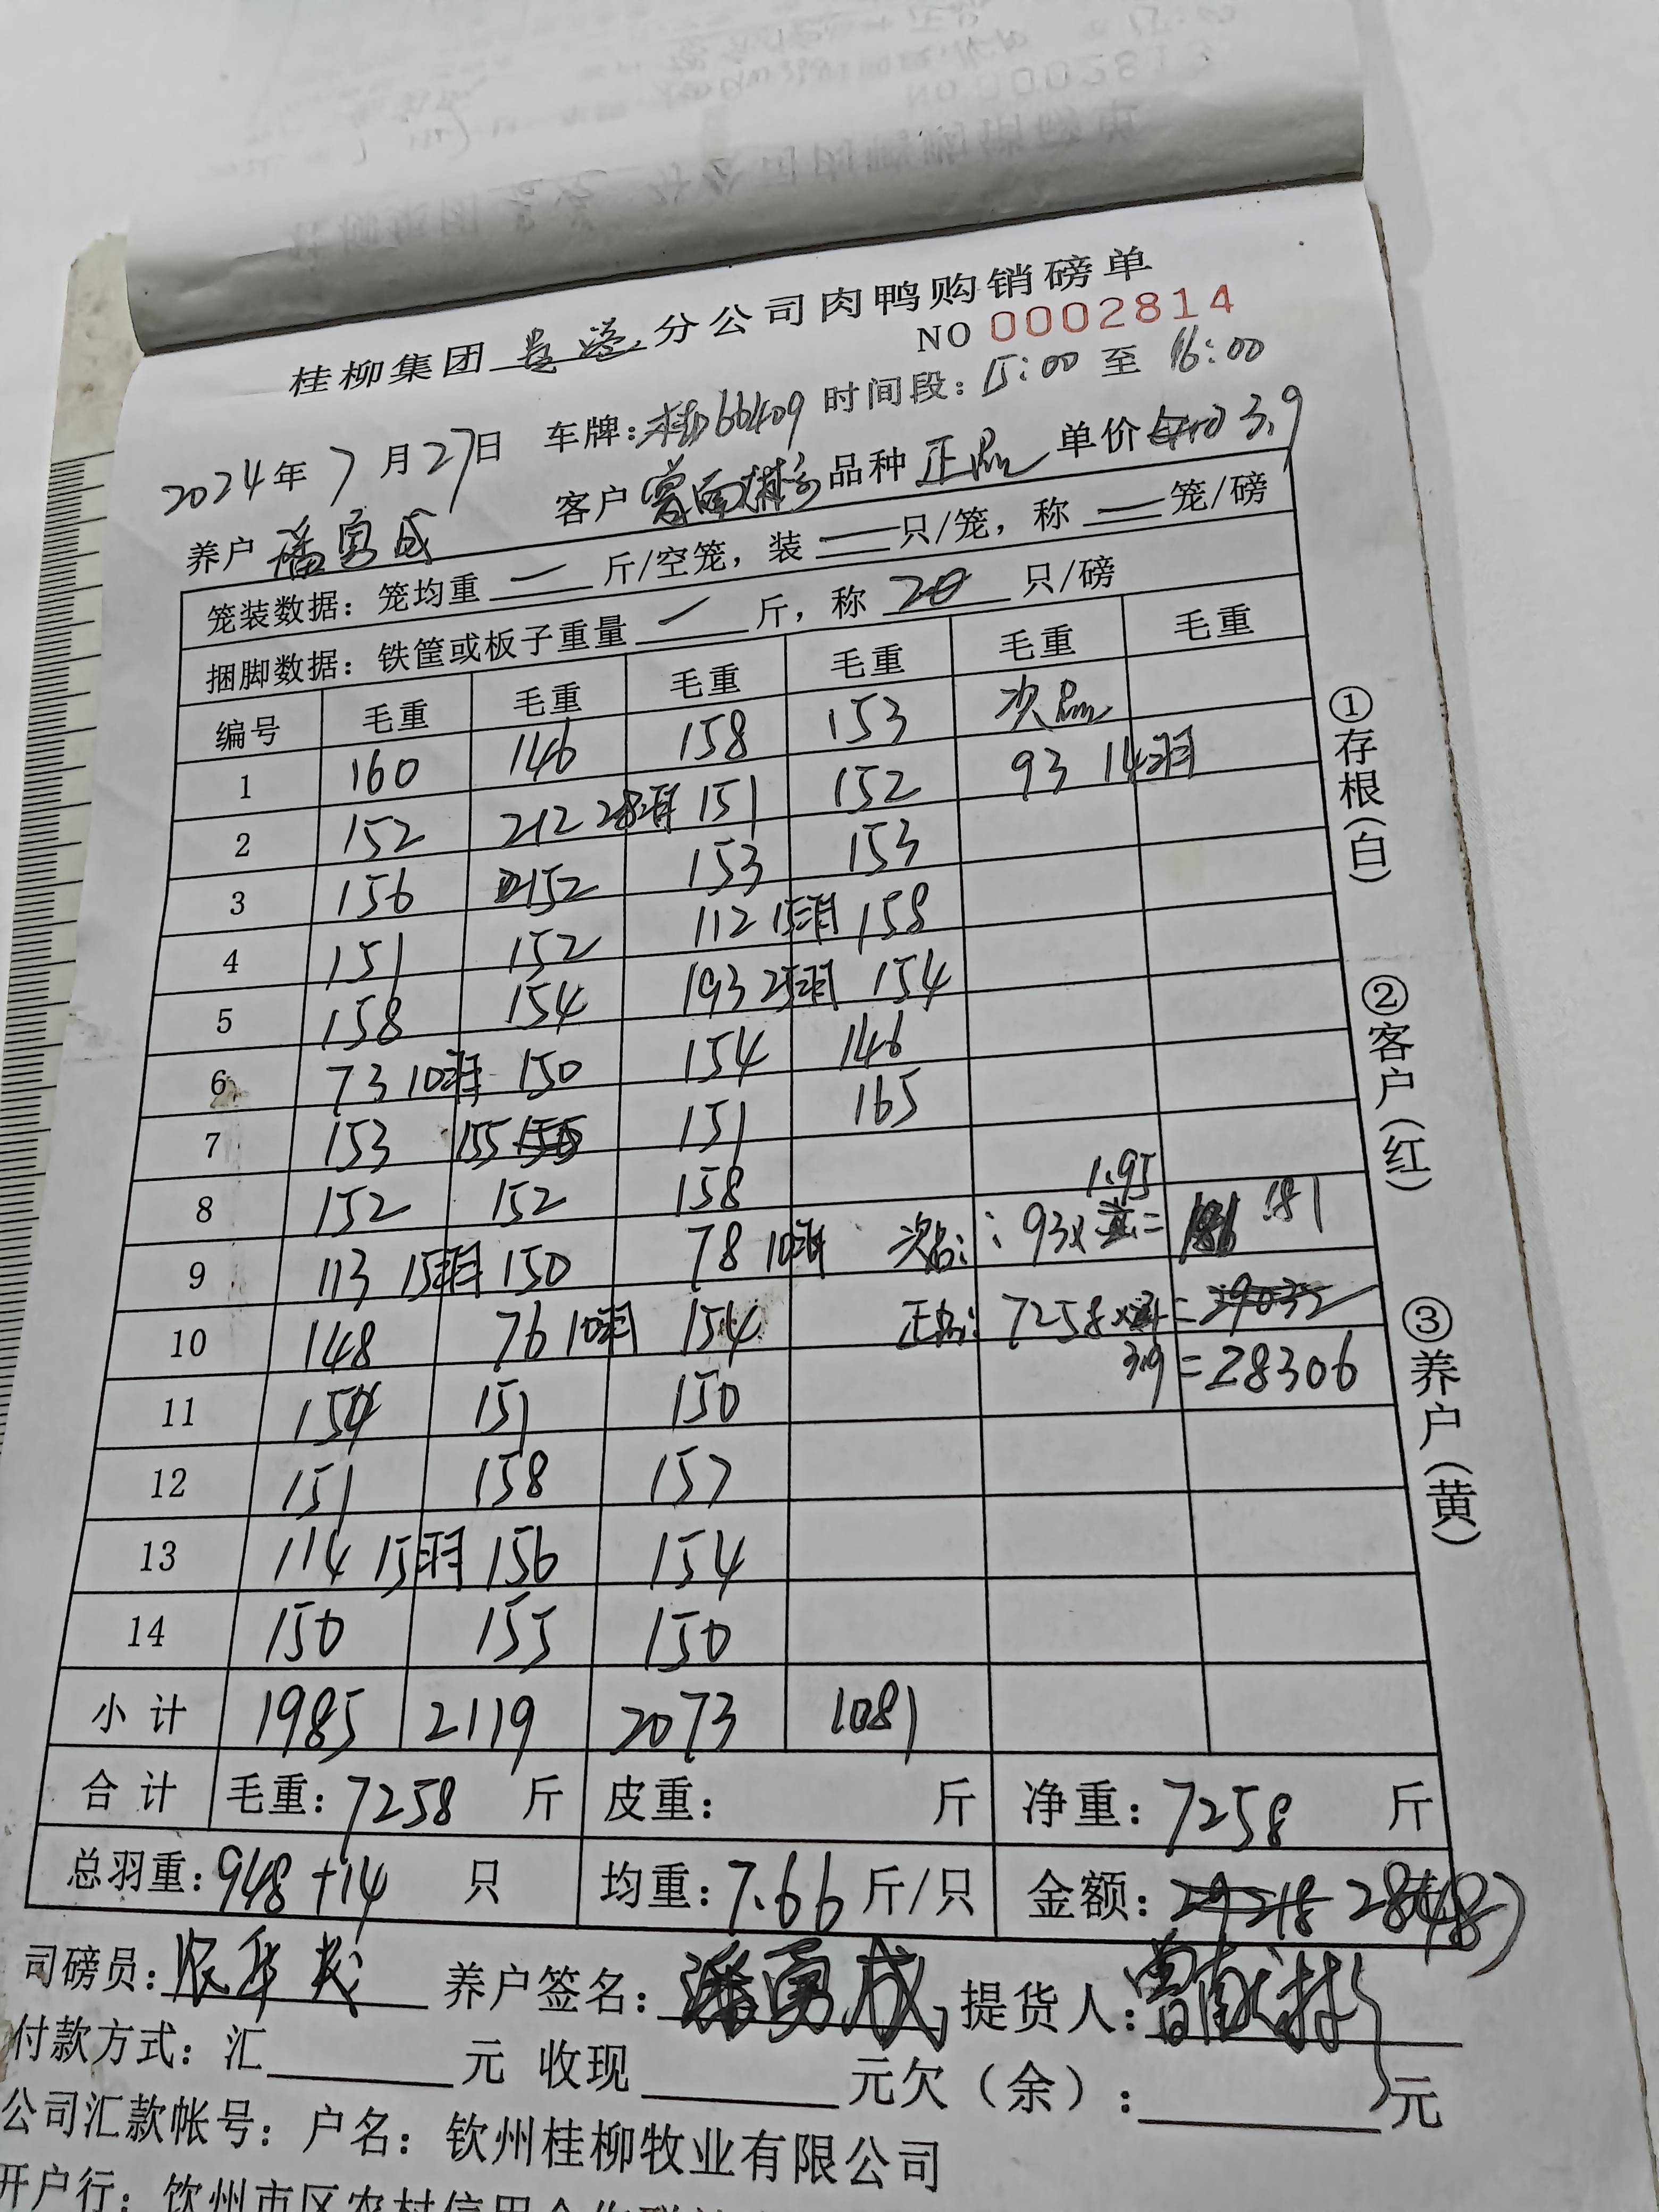 桂柳集团 贵港 分公司肉鸭购销磅单
NO 0002814
2024年 7 月27日 车牌:桂D66409 时间段:15:00 至 16:00
养户 潘勇成 客户 品种 正品 单价 3.9
笼装数据: 笼均重 一 斤/空笼, 装 一 只/笼, 称 一 笼/磅
捆脚数据: 铁筐或板子重量 一 斤, 称 20 只/磅
编号 毛重 毛重 毛重 毛重 毛重 毛重
1 160 146 158 153 次品
2 152 212 28羽 151 152 93 14羽
3 156 152 153 153
4 151 152 112 15羽 158
5 158 154 193 25羽 154
6 73 10羽 150 154 146
7 153 155 151 165
8 152 152 158 1.95
9 113 15羽 150 78 10羽 次品: 93× = 181
10 148 76 10羽 154 正品: 7258× = 29032
11 154 151 150 3.9 = 28306
12 151 158 157
13 114 15羽 156 154
14 150 155 150
小计 1985 2119 2073 1081
合计 毛重: 7258 斤 皮重: 斤 净重: 7258 斤
总羽重: 948+14 只 均重: 7.66 斤/只 金额: 29218 28487
司磅员: 养户签名: 潘勇成 提货人:
付款方式: 汇 元 收现 元欠(余): 元
公司汇款帐号: 户名: 钦州桂柳牧业有限公司
开户行: 钦州市区农村信用合作联社
①存根(白)
②客户(红)
③养户(黄)